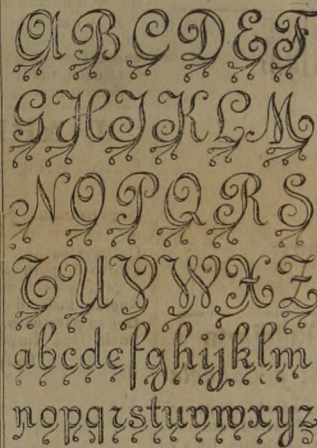 A B C D E F
G H I K L M
N O P Q R S
T U V W X Z
a b c d e f g h i j k l m
n o p q r s t u v w x y z